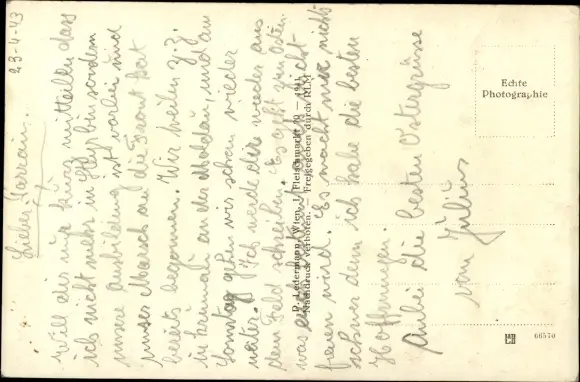 23-4-43
Lieber Torrain.
Will dir nur kurz mitteilen dass
ich nicht mehr in bin sondern
unsere Ausbildung ist vorbei und
unser Marsch auf die Front hat
bereits begonnen. Wir weilen z.Z.
in an der Moldau, und am
Sonntag gehn wir schon wieder
weiter. Ich werde dir wieder aus
dem Feld schreiben. Es geht zur
was nicht
freuen wird. Es macht mir nicht
schwer denn ich habe die besten
Hoffnungen.
Anbei die besten Ostergrüsse
von Julius
P. Ledermann, Wien I, Fleischmarkt — 1941
Nachdruck verboten. — Freigegeben durch RLM
Echte
Photographie
66570